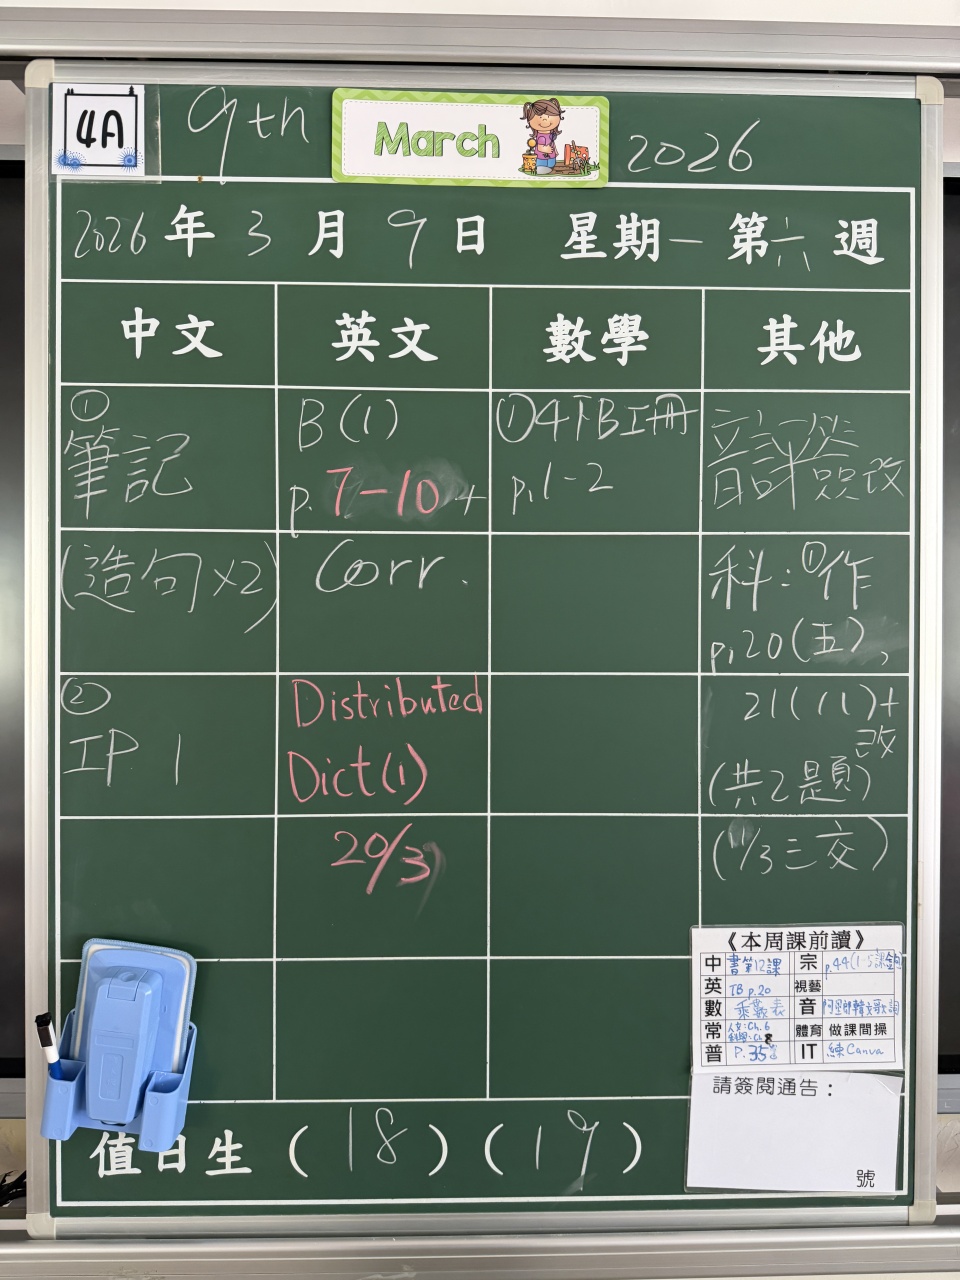 4A
9th March 2026
2026 年 3 月 9 日 星期一 第六週
中文 英文 數學 其他
①
筆記
(造句x2)
②
IP. 1
B(1)
p. 7-10 +
Corr.
Distributed
Dict(1)
20/3
①4下B工冊
p.1-2
音評簽改
科:①作
p.20(五),
21(八)+
改
(共2題)
(11/3三交)
《本周課前讀》
中 書第12課 宗 p.44(1-5課金句)
英 TB p.20 視藝
數 乘數表 音 阿里郎韓文歌詞
常 人文:Ch.6
科學:Ch.8
體育 做課間操
普 P.35 IT 練Canva
請簽閱通告:
號
值日生 (18) (19)